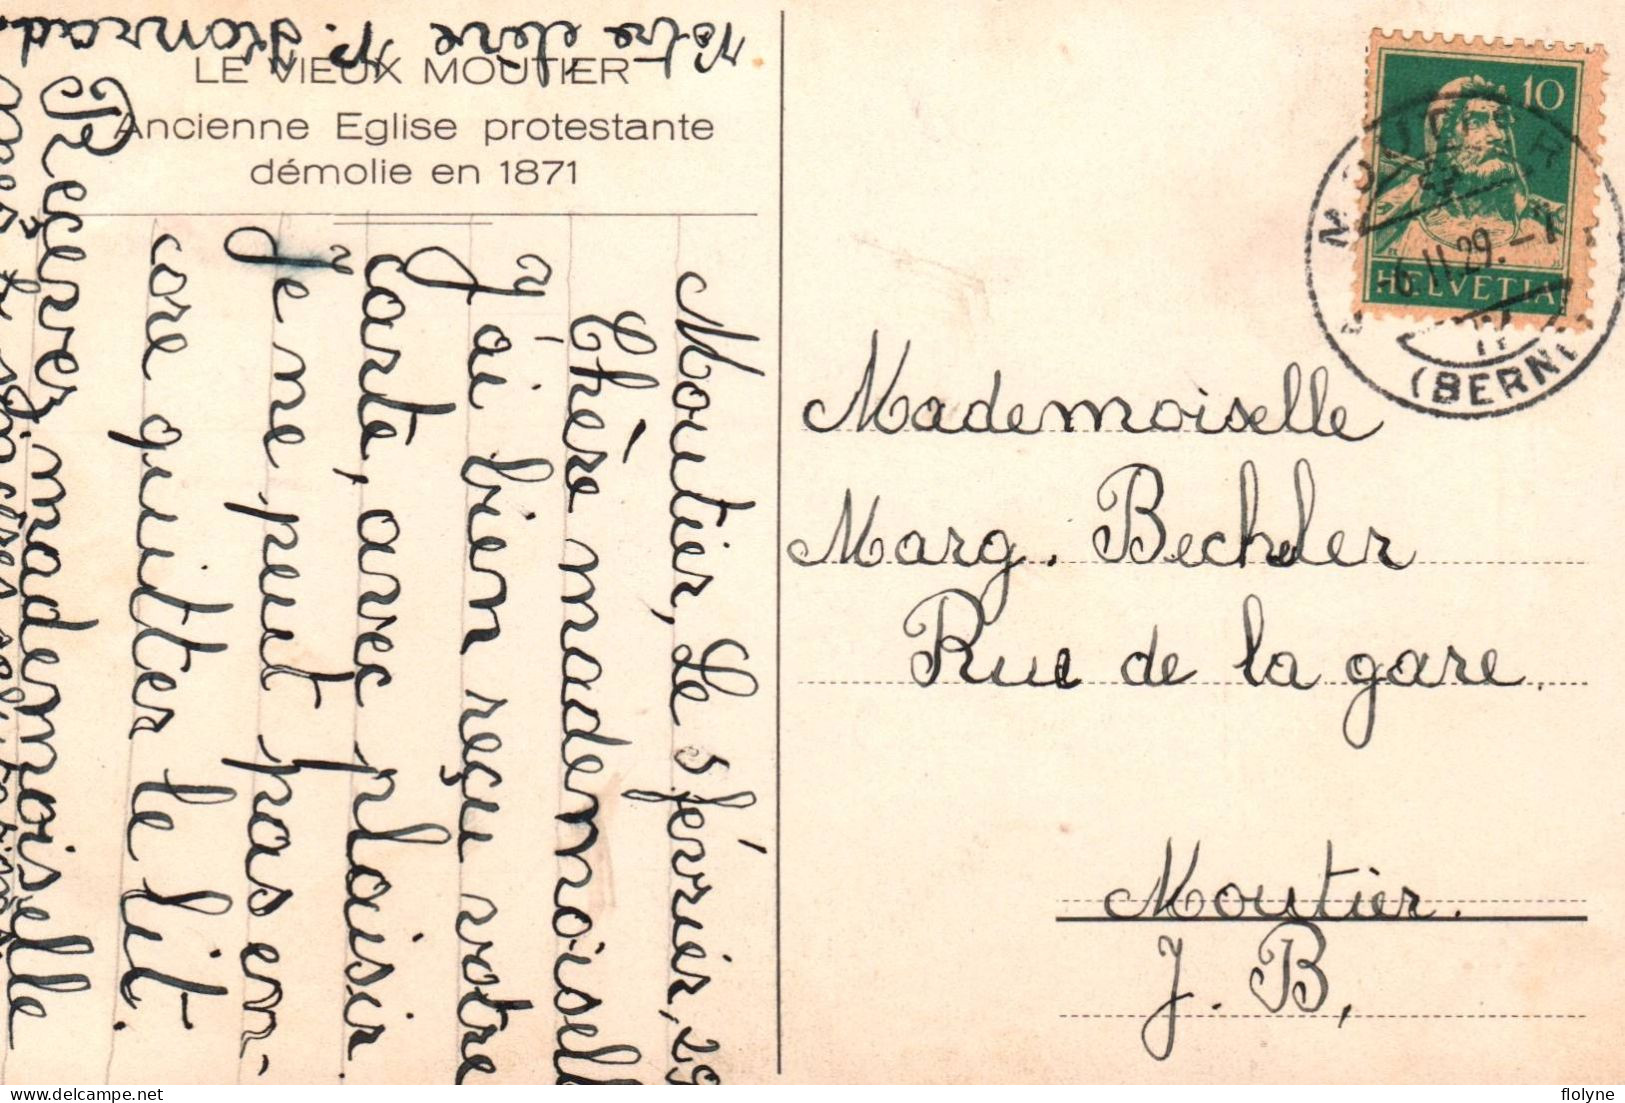 LE VIEUX MOUTIER
Ancienne Eglise protestante
démolie en 1871
Moutier, Le 5 février, 29
Chère mademoisell
J'ai bien reçu votre
carte, avec plaisir
Je ne peut pas en-
core quitter le lit.
Recever mademoiselle
Votre élève P.
Mademoiselle
Marg. Bechler
Rue de la gare.
Moutier.
J. B,
10
HELVETIA
MOUTIER
-6.II.29.-7
(BERN)
flolyne